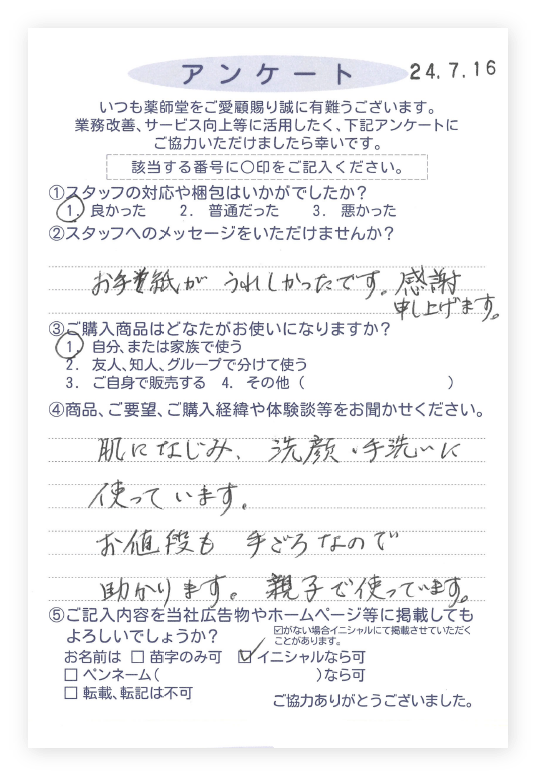 アンケート 24.7.16
いつも薬師堂をご愛顧賜り誠に有難うございます。
業務改善、サービス向上等に活用したく、下記アンケートに
ご協力いただけましたら幸いです。
該当する番号に○印をご記入ください。
①スタッフの対応や梱包はいかがでしたか?
1. 良かった 2. 普通だった 3. 悪かった
②スタッフへのメッセージをいただけませんか?
お手紙が うれしかったです。感謝
申し上げます。
③ご購入商品はどなたがお使いになりますか?
1. 自分、または家族で使う
2. 友人、知人、グループで分けて使う
3. ご自身で販売する 4. その他( )
④商品、ご要望、ご購入経緯や体験談等をお聞かせください。
肌になじみ、洗顔・手洗いに
使っています。
お値段も 手ごろなので
助かります。親子で使っています。
⑤ご記入内容を当社広告物やホームページ等に掲載しても
よろしいでしょうか?
☑がない場合イニシャルにて掲載させていただく
ことがあります。
お名前は □ 苗字のみ可 ☑ イニシャルなら可
□ ペンネーム( )なら可
□ 転載、転記は不可
ご協力ありがとうございました。